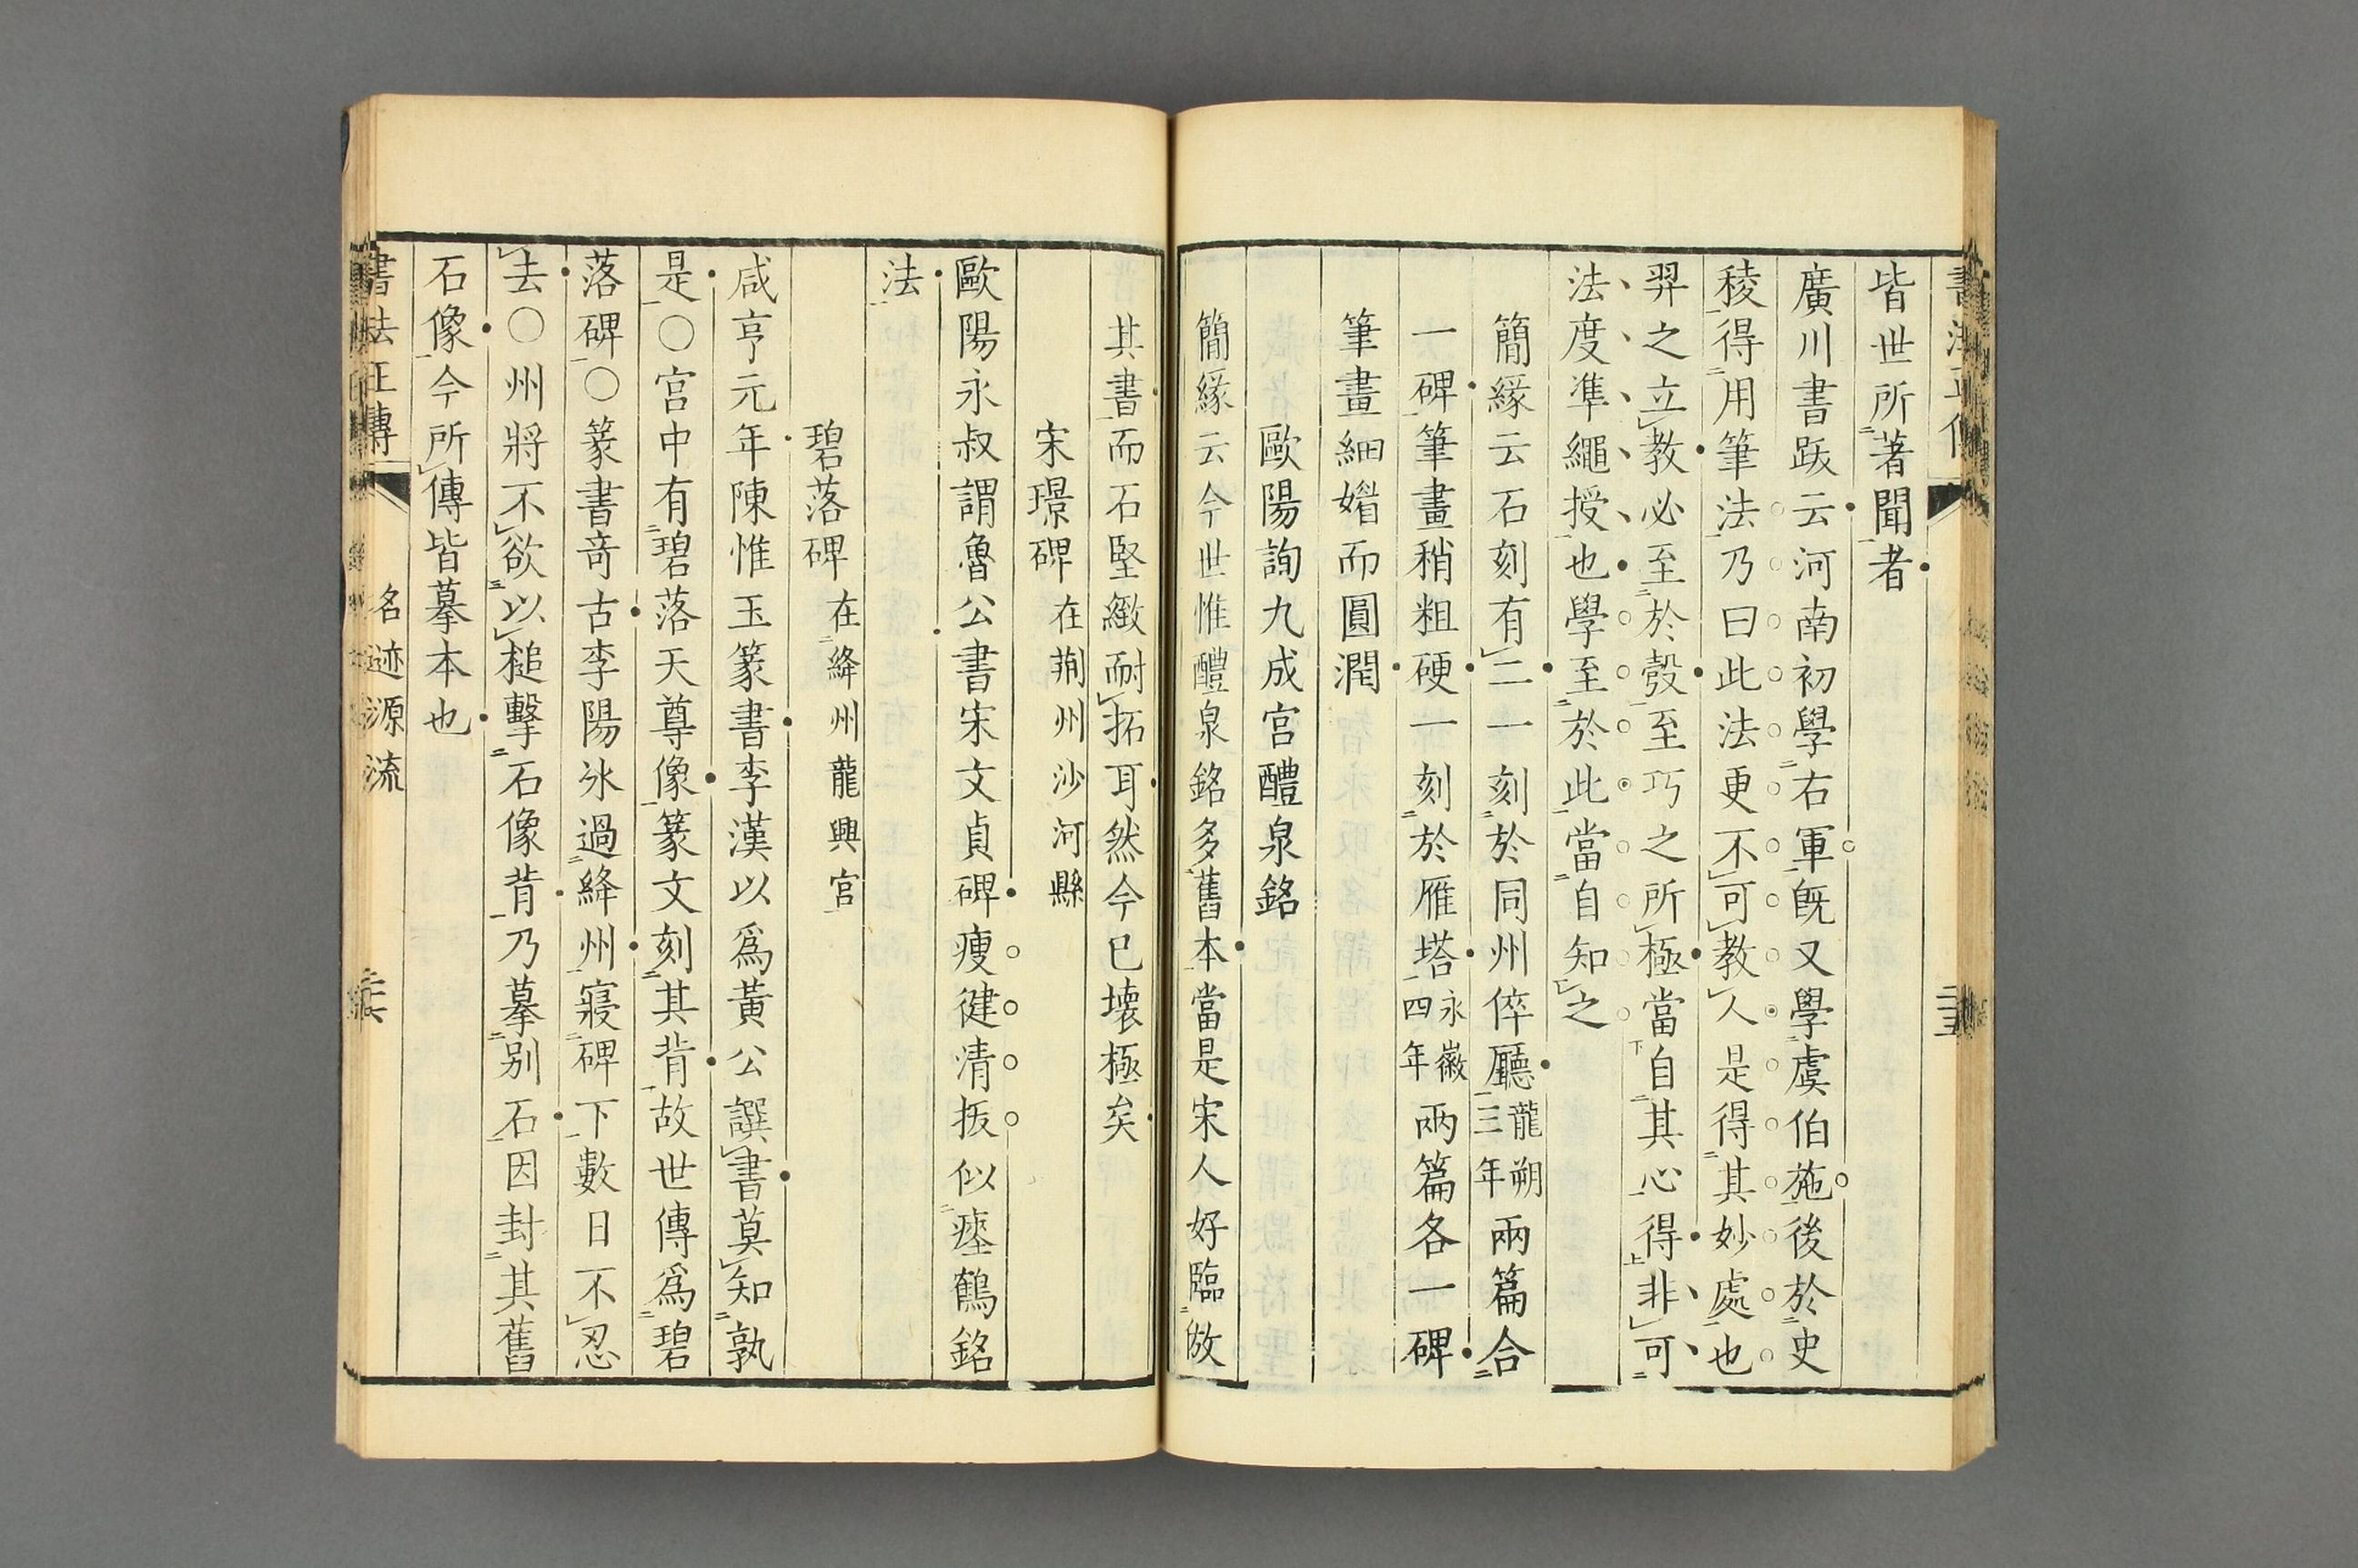 皆世所著聞者
廣川書跋云河南初學右軍旣又學虞伯施後於史
稜得用筆法乃曰此法更不可教人是得其妙處也
羿之立教必至於彀至巧之所極當自其心得非可
法度準繩授也學至於此當自知之
簡緣云石刻有二一刻於同州倅廳龍朔三年兩篇合
一碑筆畫稍粗硬一刻於雁塔永徽四年兩篇各一碑
筆畫細婿而圓潤
歐陽詢九成宮醴泉銘
簡緣云今世惟醴泉銘多舊本當是宋人好臨倣
其書而石堅緻耐拓耳然今已壞極矣
宋璟碑在荊州沙河縣
歐陽永叔謂魯公書宋文貞碑瘦健清拔似瘞鶴銘
法
碧落碑在絳州龍興宮
咸亨元年陳惟玉篆書李漢以爲黃公譔書莫知孰
是○宮中有碧落天尊像篆文刻其背故世傳爲碧
落碑○篆書奇古李陽冰過絳州寢碑下數日不忍
去○州將不欲以槌擊石像背乃摹別石因封其舊
石像今所傳皆摹本也
書法正傳
名迹源流
二十六